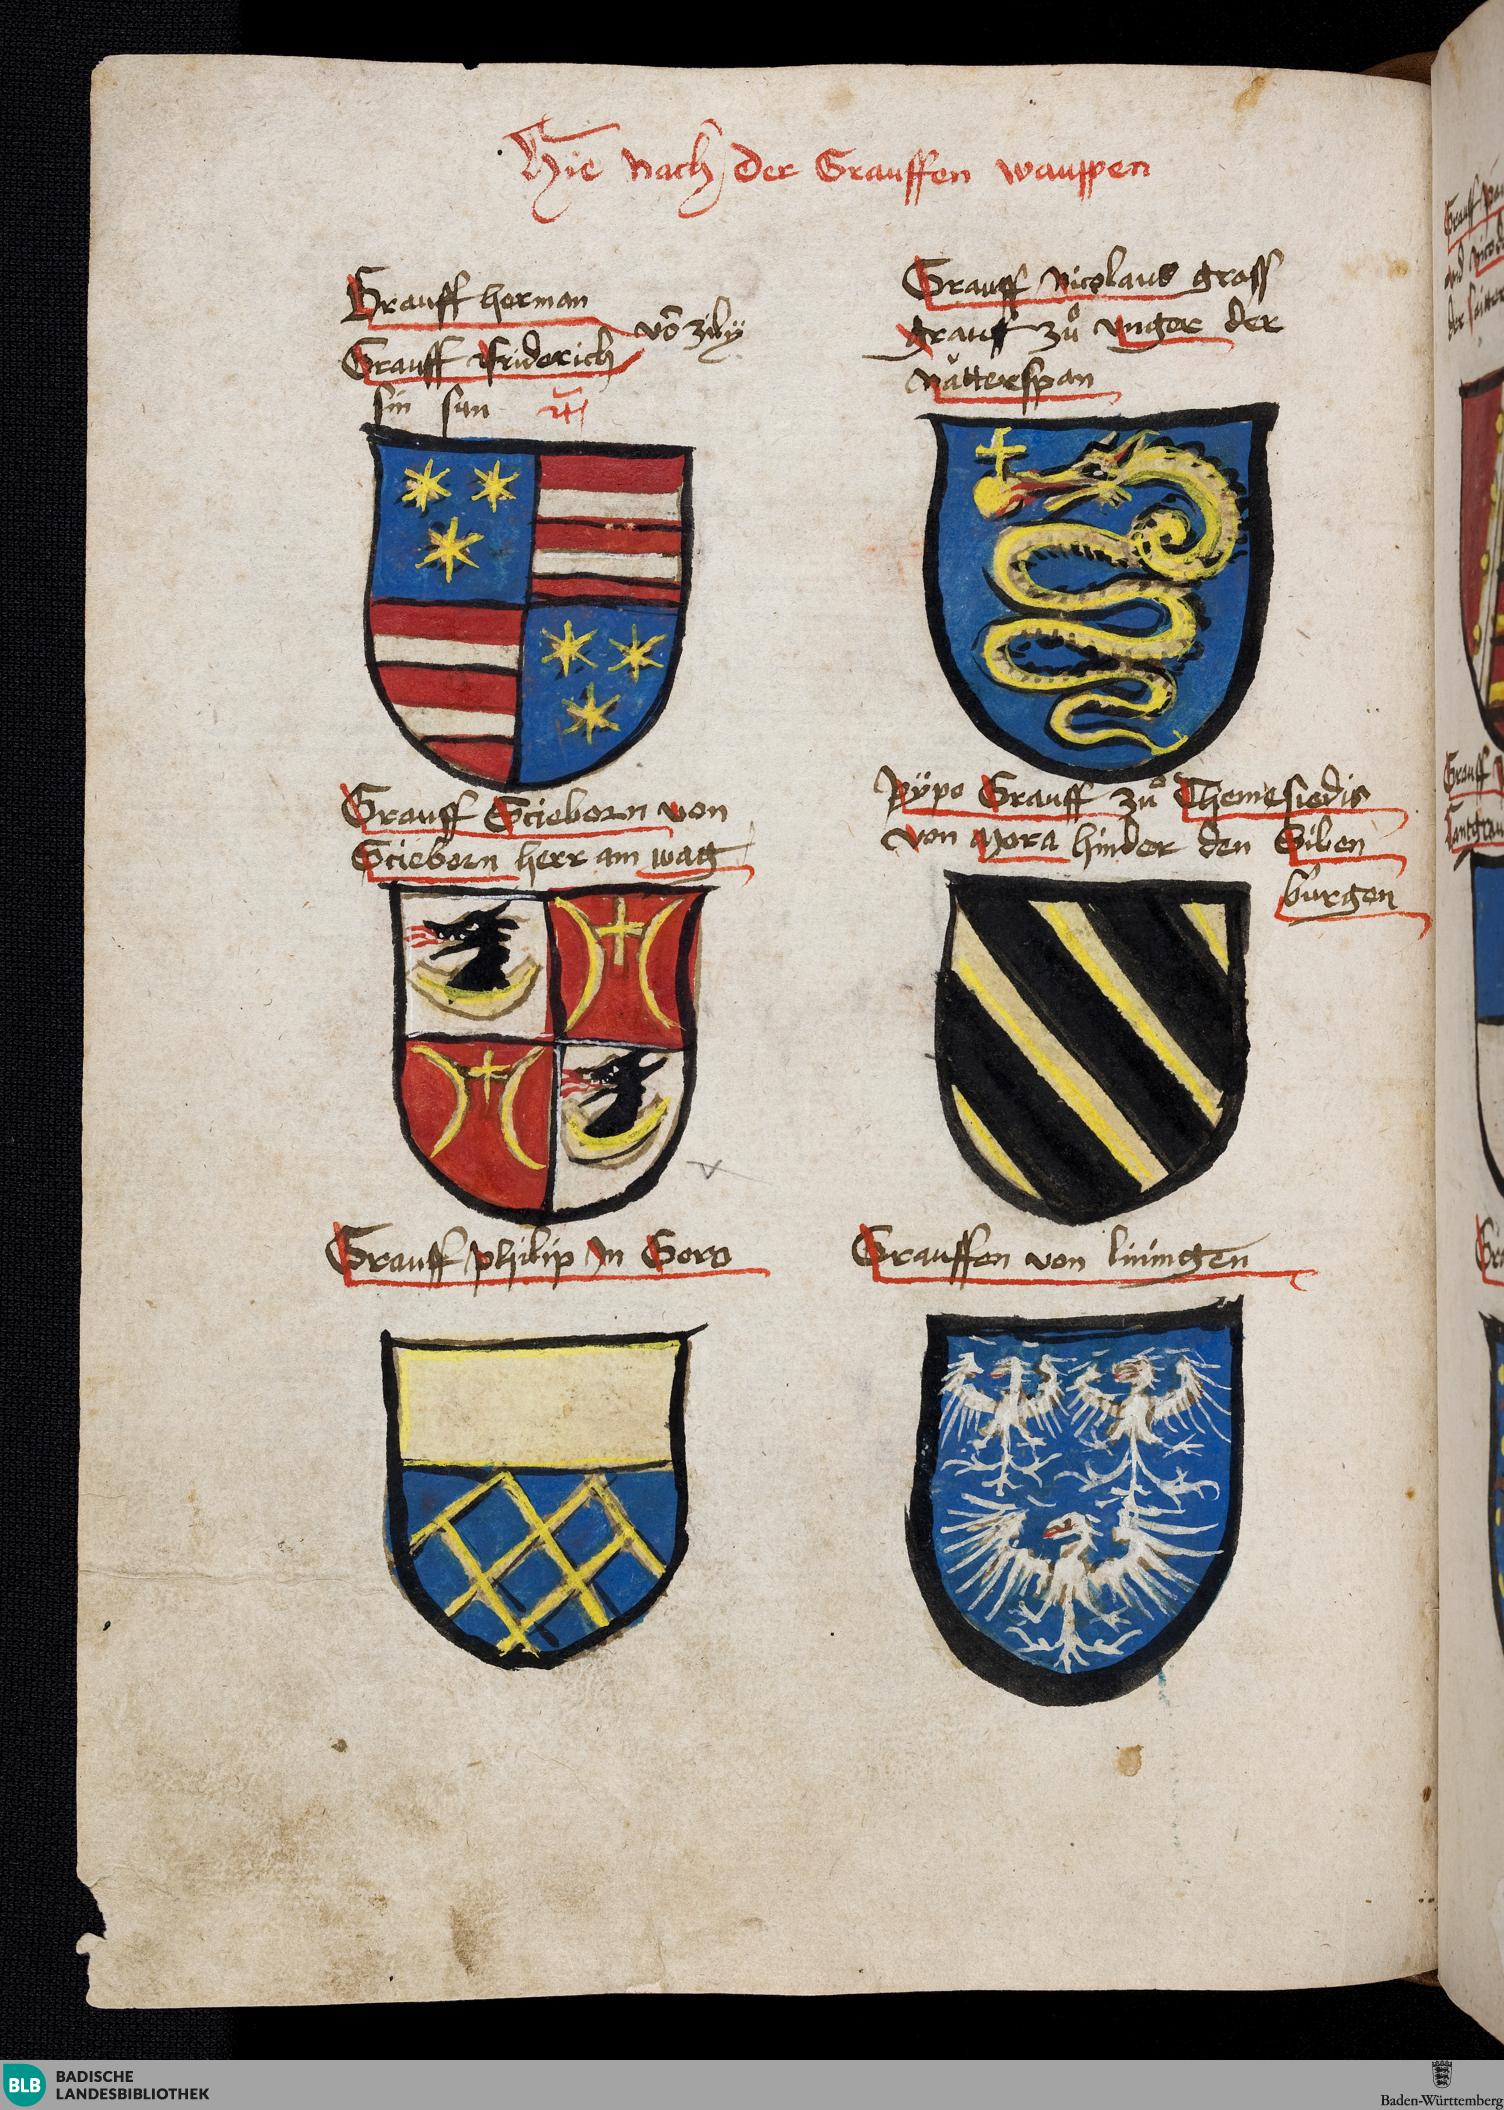 Hie nach der Grauffen wauppen
Grauff herman
Grauff friderich
vō zily
sin sun
Grauff Nicolaus gross
grauf zů vnger der
Nätterspan
Grauff Scieborn von
Scieborn herr am wag
Pÿpo Grauff zů Themesiedis
von Mora hinder den Siben
burgen
Grauff philip In Gorg
Grauffen von liningen
BLB
BADISCHE
LANDESBIBLIOTHEK
Baden-Württemberg